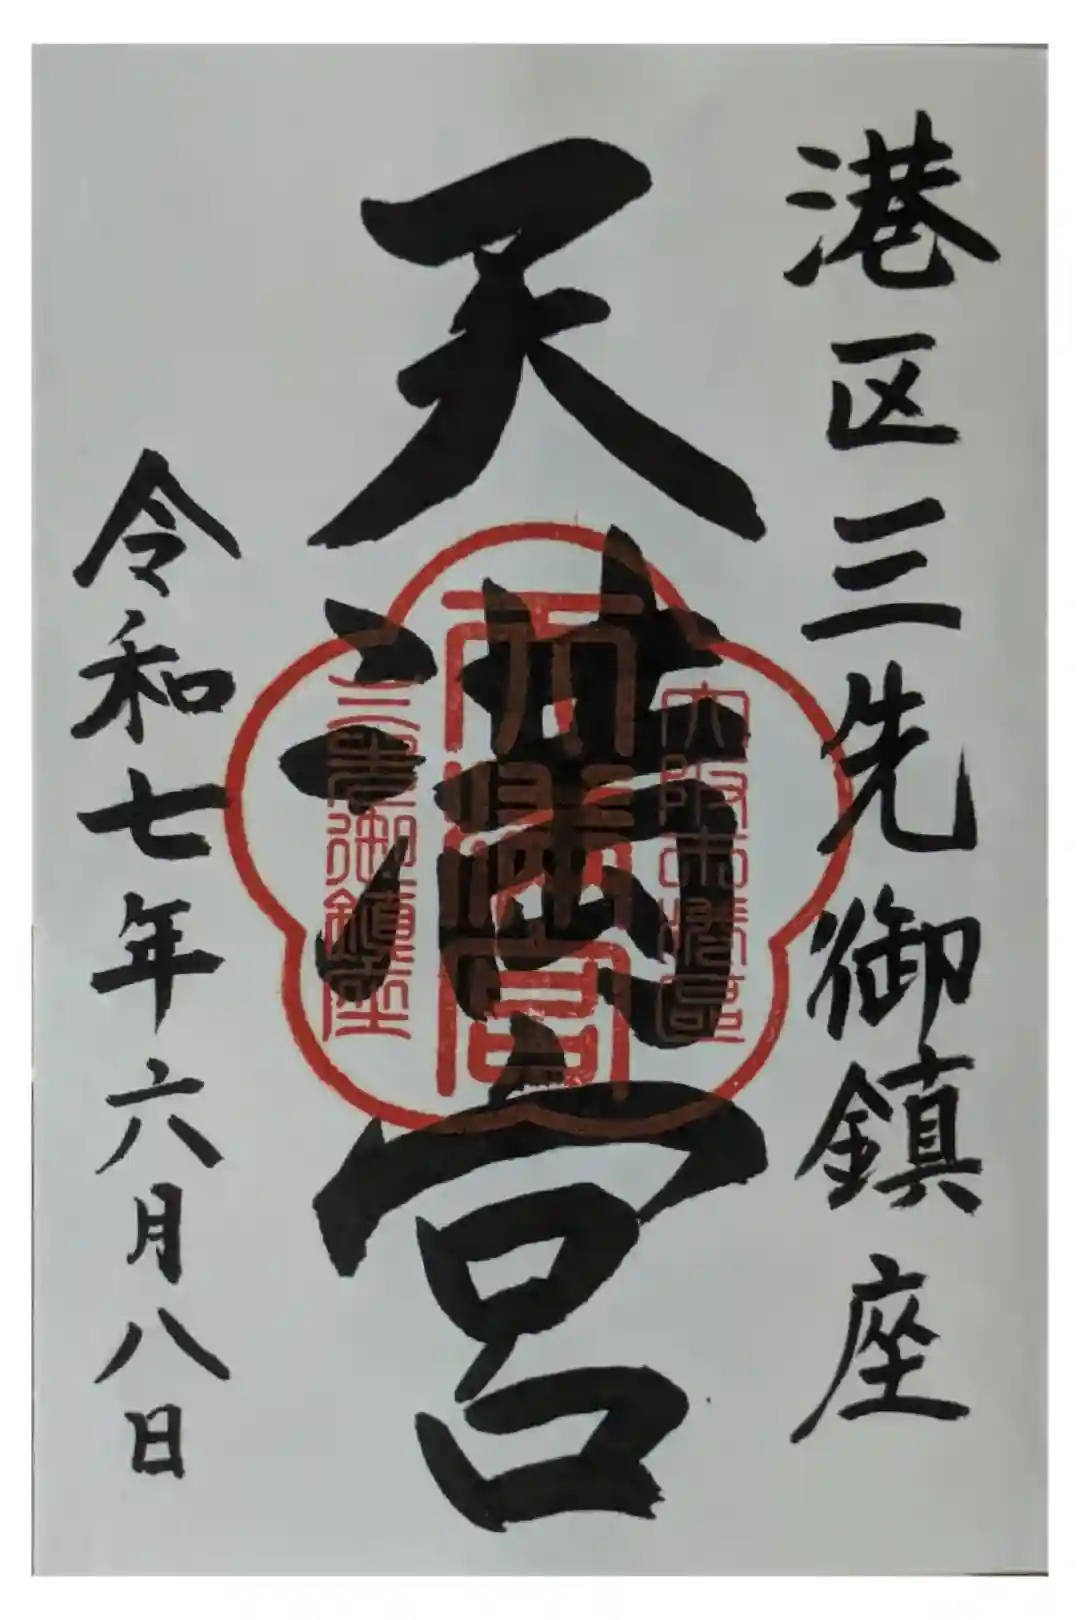 港区三先御鎮座
天満宮
大阪市港區
天満宮
三先御鎮座
令和七年六月八日